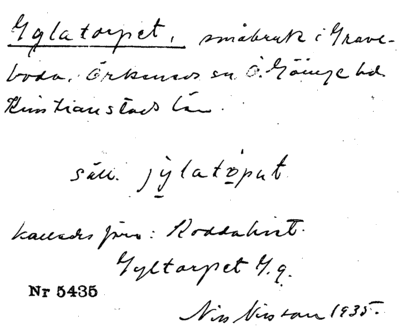 Gylatorpet, småbruk i Grave-
boda, Örkeneds sn Ö. Göinge hd.
Kristianstads län.
säll. jylatoput
kallades förr: Roddahult.
Gyltorpet G.q.
Nr 5435
Nils Nilsson 1935.